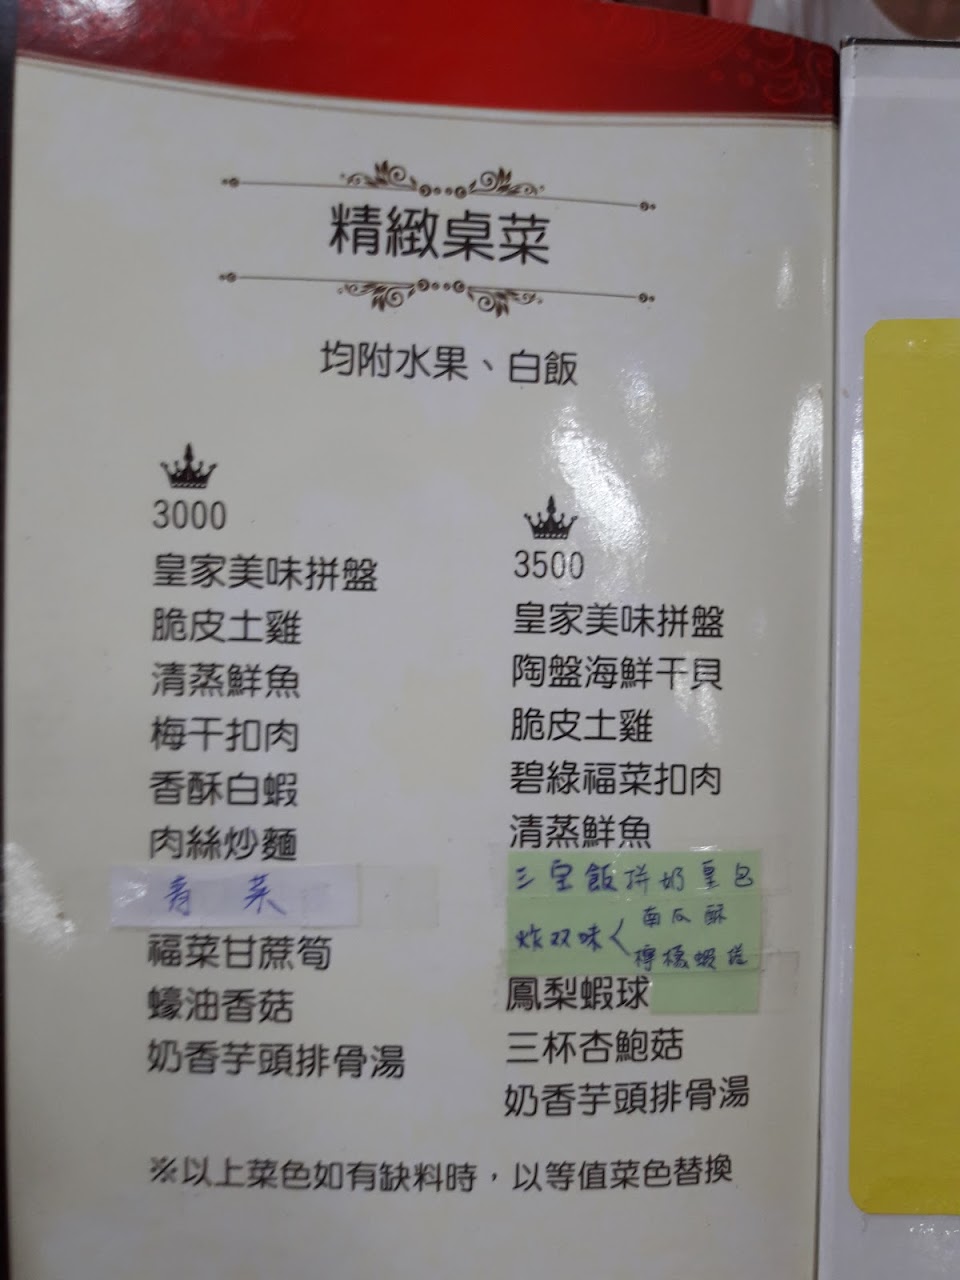 精緻桌菜
均附水果、白飯
3000
皇家美味拼盤
脆皮土雞
清蒸鮮魚
梅干扣肉
香酥白蝦
肉絲炒麵
青菜
福菜甘蔗筍
蠔油香菇
奶香芋頭排骨湯
3500
皇家美味拼盤
陶盤海鮮干貝
脆皮土雞
碧綠福菜扣肉
清蒸鮮魚
三宝飯拼奶皇包
炸双味<南瓜酥
檸檬蝦捲
鳳梨蝦球
三杯杏鮑菇
奶香芋頭排骨湯
※以上菜色如有缺料時，以等值菜色替換